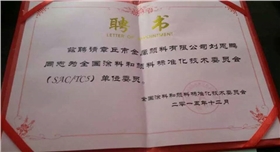 聘书
兹聘请章丘市金属颜料有限公司刘恩鹏
同志为全国涂料和颜料标准化技术委员会
(SAC/TC5)单位委员。
全国涂料和颜料标准化技术委员会
二零一五年十二月